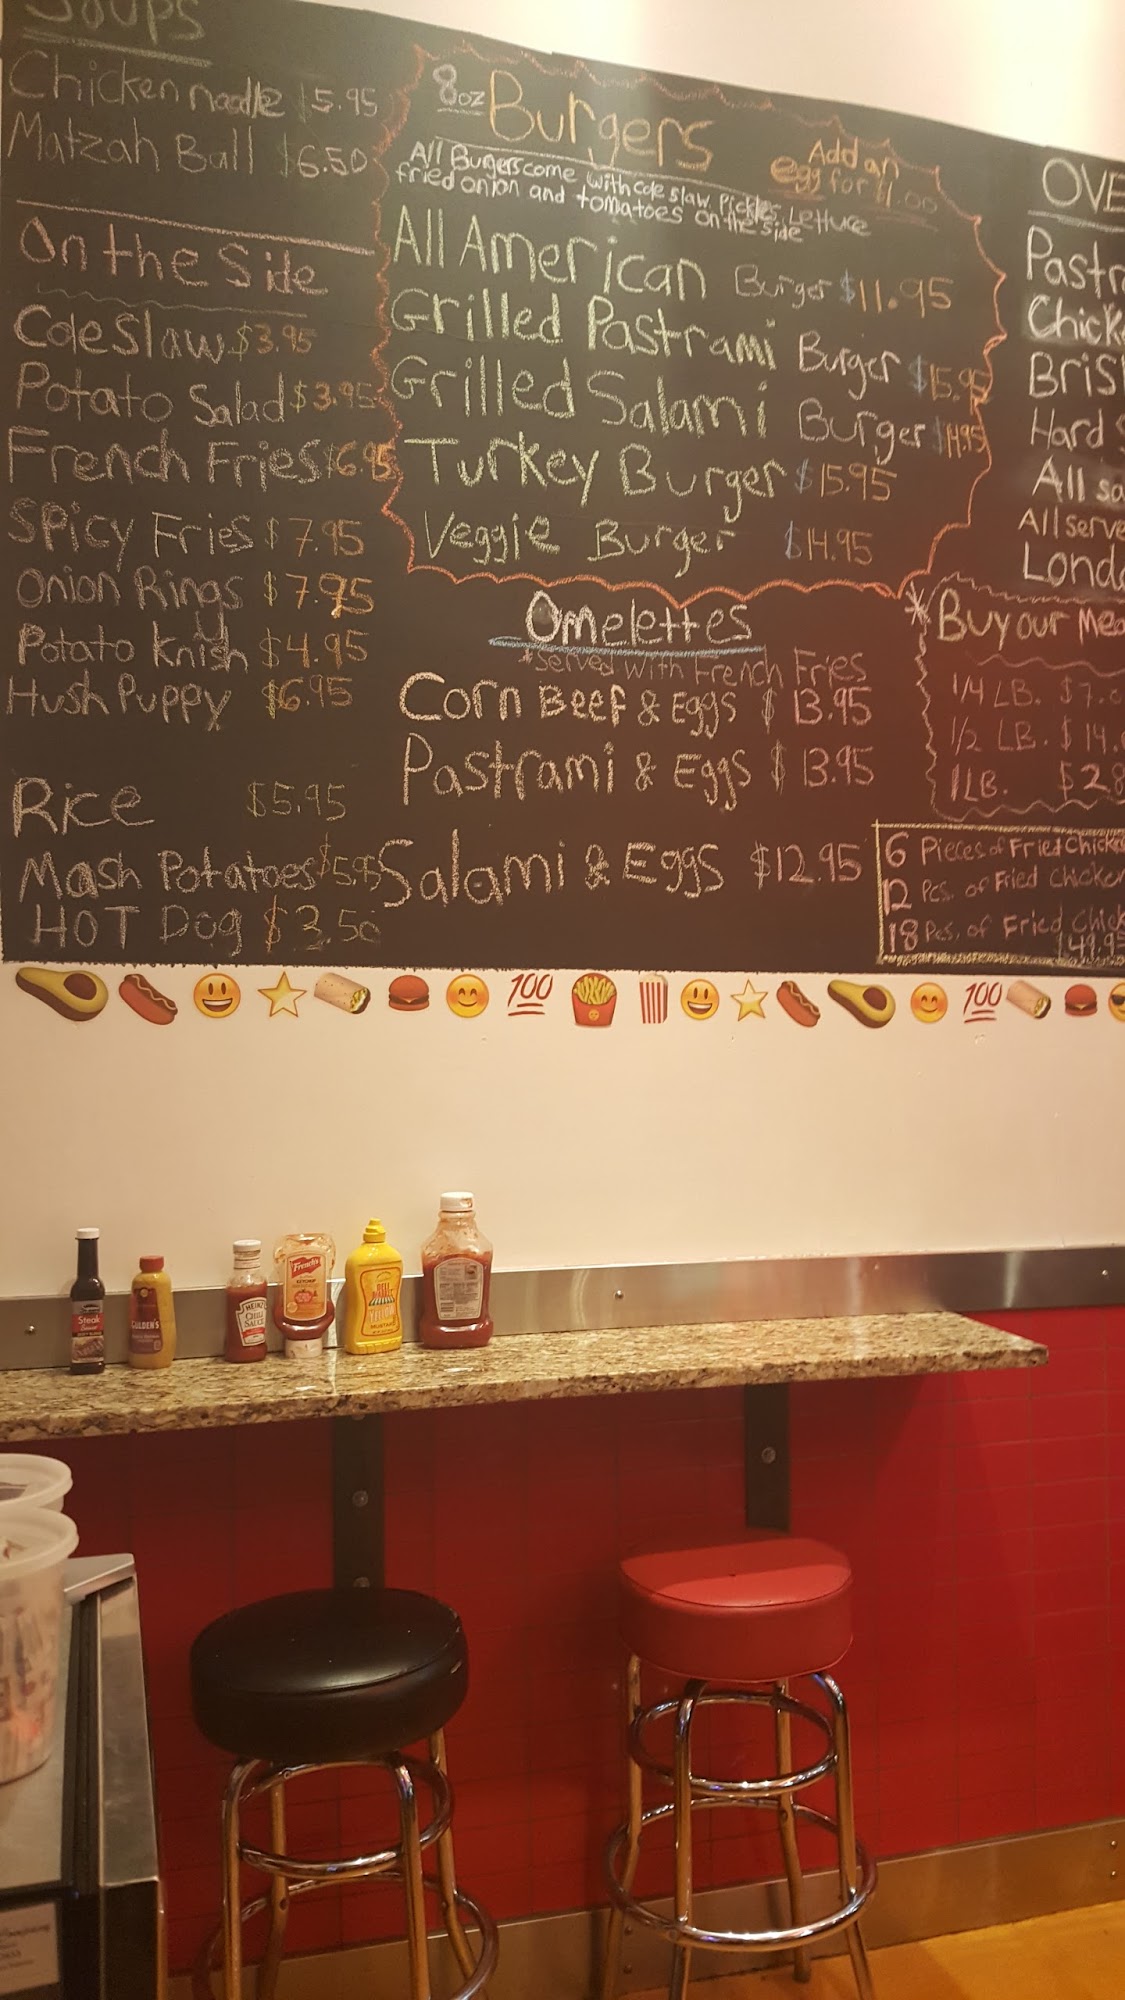 Soups
Chicken noodle $5.95
Matzah Ball $6.50
On the Side
Coleslaw $3.95
Potato Salad $3.95
French Fries $6.95
Spicy Fries $7.95
Onion Rings $7.95
Potato Knish $4.95
Hush Puppy $6.95
Rice $5.95
Mash Potatoes $5.95
HOT Dog $3.50
8oz Burgers
All Burgers come with cole slaw, Pickles, Lettuce
fried onion and tomatoes on the side
Add an
egg for $1.00
All American Burger $11.95
Grilled Pastrami Burger $15.95
Grilled Salami Burger $14.95
Turkey Burger $15.95
Veggie Burger $14.95
Omelettes
*Served with French Fries
Corn Beef & Eggs $13.95
Pastrami & Eggs $13.95
Salami & Eggs $12.95
OVE
Pastr
Chick
Bris
Hard
All sa
All serve
Lond
*Buy our Mea
1/4 LB. $7.0
1/2 LB. $14.
1 LB. $28
6 Pieces of Fried Chicke
12 Pcs. of Fried Chicken
18 Pcs. of Fried Chick
$49.95
100
100
Steak
Sauce
GULDEN'S
HEINZ
CHILI
SAUCE
French's
KETCHUP
DELI
YELLOW
MUSTARD